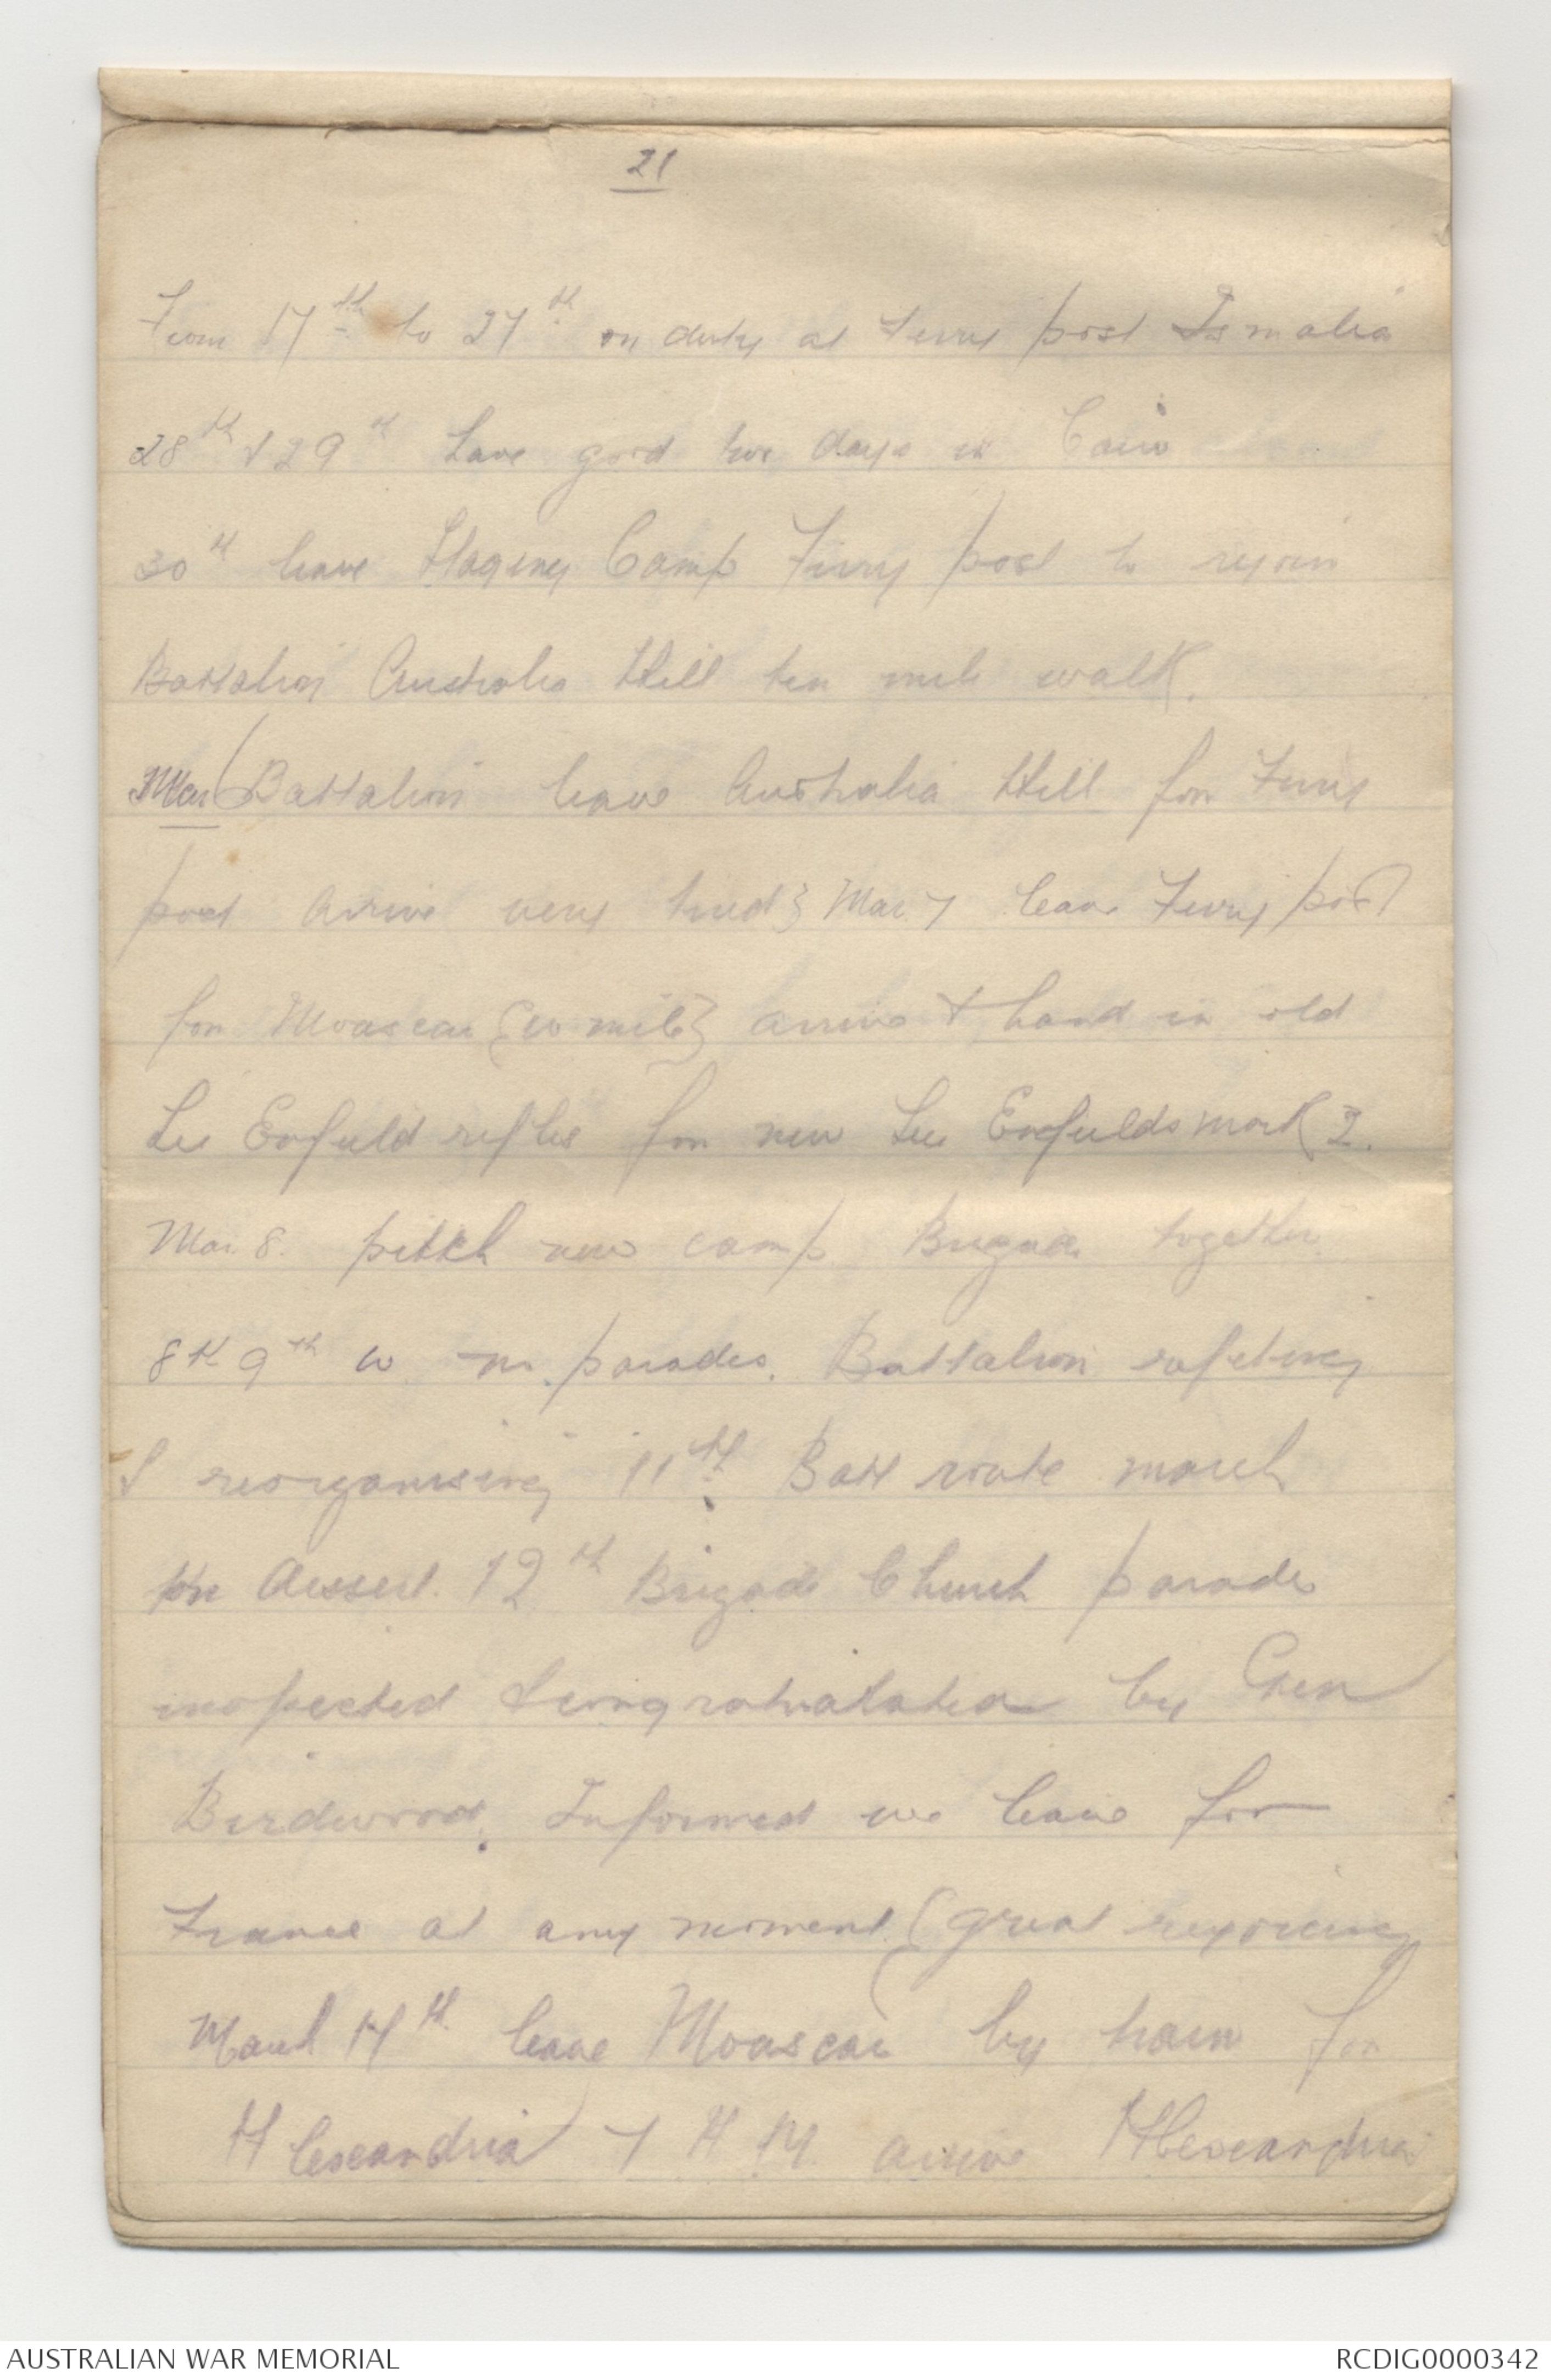 21
From 17th to 27th on duty at Ferry post Ismalia
28th & 29th have good two days in Cairo
30th leave Staging Camp Ferry post to rejoin
Battalion Australia Hill ten mile walk.
Mar (Battalion leave Australia Hill for Ferry
post arrive very tired} Mar. 7 leave Ferry post
for Moascar {10 mile} arrive & hand in old
Lee Enfield rifles for new Lee Enfields mark 2.
Mar. 8. pitch new camp Brigade together
8th 9th 10 no parades. Battalion refitting
& reorganising 11th Batt route march
on dessert. 12th Brigade Church parade
inspected & congratulated by Gen
Birdwood. Informed we leave for
France at any moment (great rejoicing
March 14th leave Moascar by train for
Alexandria 7 A M. arrive Alexandria
AUSTRALIAN WAR MEMORIAL
RCDIG0000342